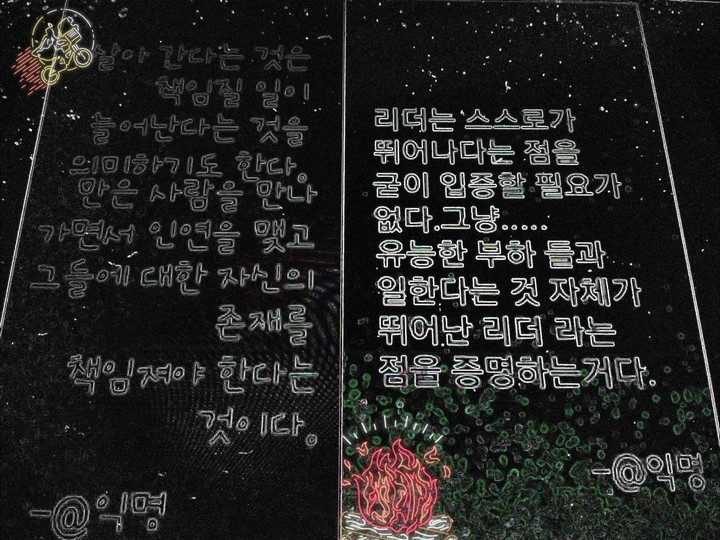 살아 간다는 것은
책임질 일이
늘어난다는 것을
의미하기도 한다。
만은 사람을 만나
가면서 인연을 맺고
그들에 대한 자신의
존재를
책임져야 한다는
것이다。
-@익명
리더는 스스로가
뛰어나다는 점을
굳이 입증할 필요가
없다.그냥.....
유능한 부하 들과
일한다는 것 자체가
뛰어난 리더 라는
점을 증명하는거다.
-@익명